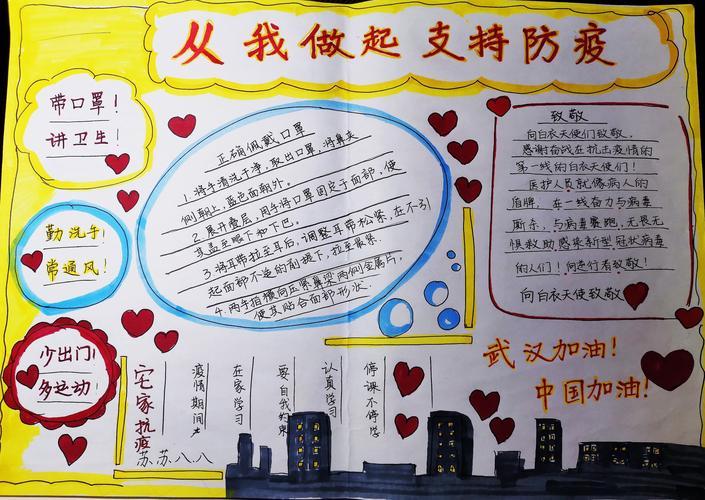 从我做起 支持防疫
带口罩！
讲卫生！
勤洗手！
常通风！
少出门！
多运动！
正确佩戴口罩
1.将手清洗干净，取出口罩，将鼻夹
侧朝上，蓝色面朝外。
2.展开叠层，用手将口罩固定于面部，使
其盖至眼下和下巴。
3.将耳带拉至耳后，调整耳带松紧，在不引
起面部不适的前提下，拉至最紧。
4.两手指横向压紧鼻梁两侧金属片，
使其贴合面部形状.
致敬
向白衣天使们致敬，
感谢奋战在抗击疫情的
第一线的白衣天使们！
医护人员就像病人的
盾牌，在一线奋力与病毒
厮杀，与病毒赛跑，无畏无
惧救助感染新型冠状病毒
的人们！向逆行者致敬！
向白衣天使致敬
武汉加油！
中国加油！
宅家抗疫
疫情期间
在家学习
要自我约束
认真学习
停课不停学
苏苏八八